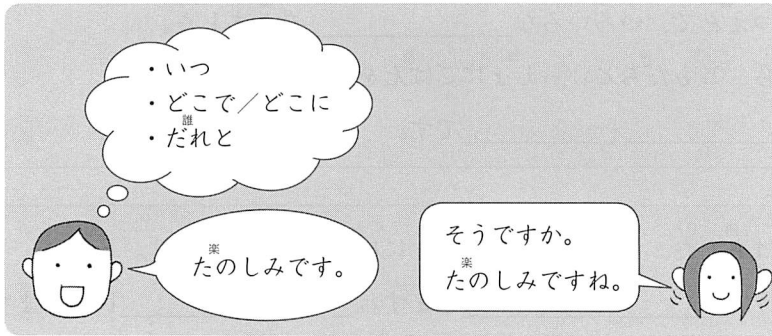 ・いつ
・どこで／どこに
誰
・だれと
楽
たのしみです。
そうですか。
楽
たのしみですね。